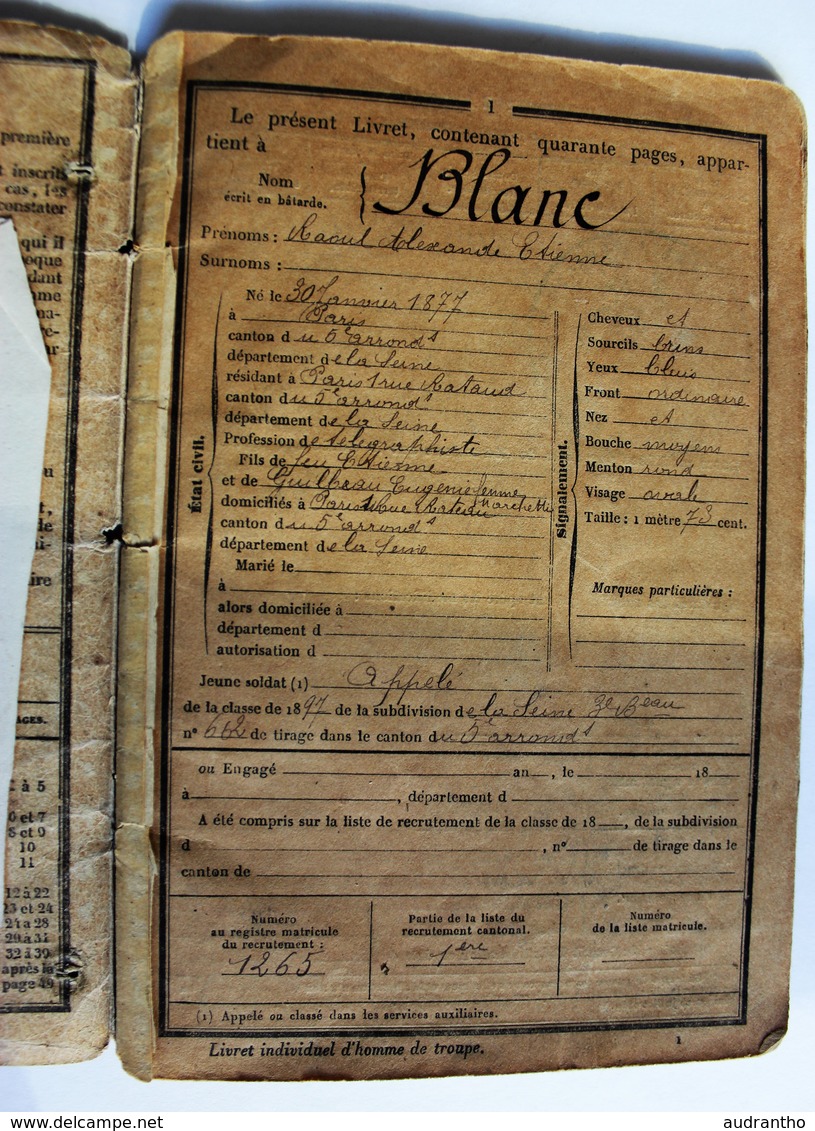 première
t inscrits
cas, les
constater
qui il
poque
dant
mme
ma-
re-
ur
u
t,
de
ui-
ire
AGES.
2 à 5
6 et 7
8 et 9
10
11
12 à 22
23 et 24
24 à 28
29 à 31
32 à 39
après la
page 49
1
Le présent Livret, contenant quarante pages, appar-
tient à
Nom
écrit en bâtarde.
Blanc
Prénoms : Raoul Alexandre Etienne
Surnoms :
État civil.
Né le 30 Janvier 1877
à Paris
canton du 5e arrondt
département de la Seine
résidant à Paris 1 rue Rataud
canton du 5e arrondt
département de la Seine
Profession de télégraphiste
Fils de feu Etienne
et de Guilbeau Eugenie femme Marchetti
domiciliés à Paris 1 rue Rateau
canton du 5e arrondt
département de la Seine
Marié le
à
alors domiciliée à
département d
autorisation d
Signalement.
Cheveux et
Sourcils bruns
Yeux bleus
Front ordinaire
Nez et
Bouche moyens
Menton rond
Visage ovale
Taille : 1 mètre 73 cent.
Marques particulières :
Jeune soldat (1) Appelé
de la classe de 1897 de la subdivision de la Seine 3e Beau
n° 662 de tirage dans le canton du 5e arrondt
ou Engagé an , le 18
à , département d
A été compris sur la liste de recrutement de la classe de 18 , de la subdivision
d , n° de tirage dans le
canton de
Numéro
au registre matricule
du recrutement :
1265
Partie de la liste du
recrutement cantonal.
1ère
Numéro
de la liste matricule.
(1) Appelé ou classé dans les services auxiliaires.
Livret individuel d'homme de troupe.
1
audrantho